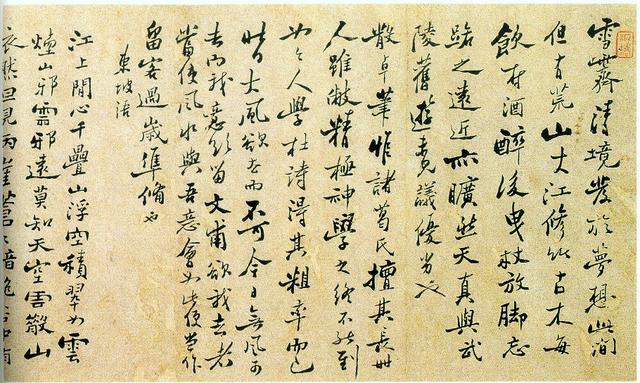 雪霽清境發於夢想此間
但有荒山大江修竹古木每
飲村酒醉後曳杖放脚忘
路之遠近亦曠然天真與武
陵舊遊議優劣
散卓筆惟諸葛氏擅其長世
人雖敝精極神學之終不能到
如人學杜詩得其粗率而已
日大風欲去而不可今日無風可
去而我意欲留文甫欲我去者
當使風水與吾意會如此便當作
留客過歲準備也
東坡語
江上閒心千疊山浮空積翠如雲
煙山邪雲邪遠莫知天空雲散山
依然但見兩崖蒼蒼暗絕谷中有